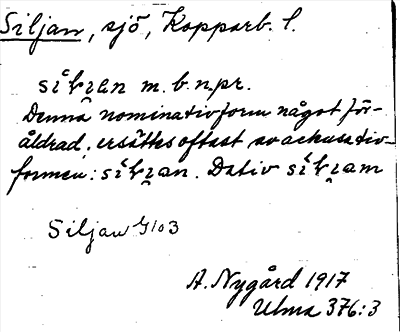 Siljan, sjö, Kopparb. l.
m. b. n. pr.
Denna nominativform något för-
åldrad, ersättes oftast av ackusativ-
formen: Dativ
Siljan
A. Nygård 1917
Ulma 376:3